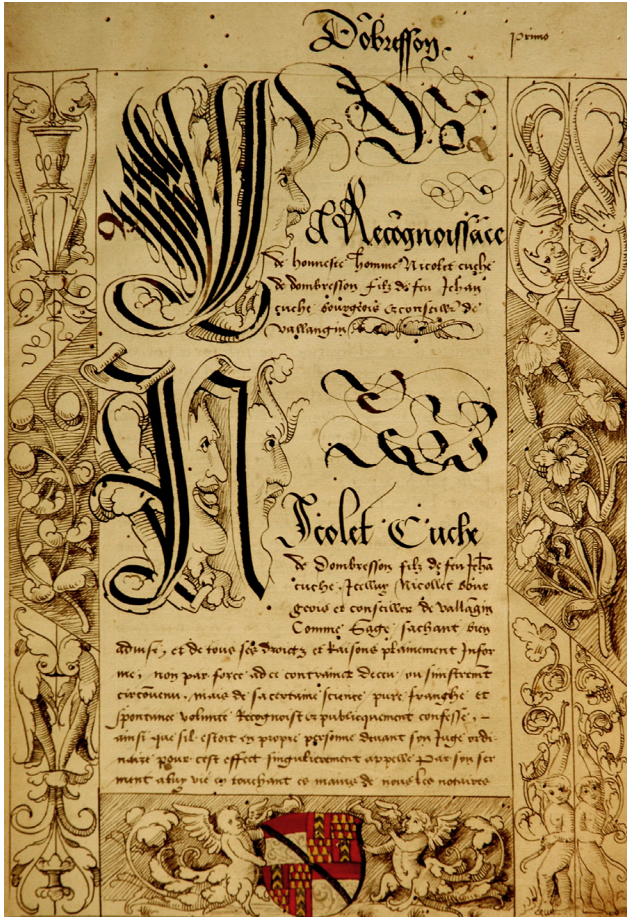 Dōbresson.
primo
La Recōgnoissāce
de honneste homme Nicolet cuche
de dombresson filz de feu Jehan
cuche bourgeois & conseiller de
Vallangin
Nicolet Cuche
de Dombresson filz de feu Jehā
cuche. Icelluy Nicollet bour
geois et conseiller de vallāgin
Comme Sage sachant bien
aduise, et de tous ses droictz et Raisons plainement Infor
me, non par force ad ce contrainct deceu ou sinistremt
circōuenu, mais de sa certaine science pure franche et
spontanee volunte Recognoist et publicquement confesse, –
ainsi que sil estoit en propre personne deuant son Juge ordi-
naire pour cest effect singulierement appelle Par son ser
ment a luy en touchant es mains de nous les notaires